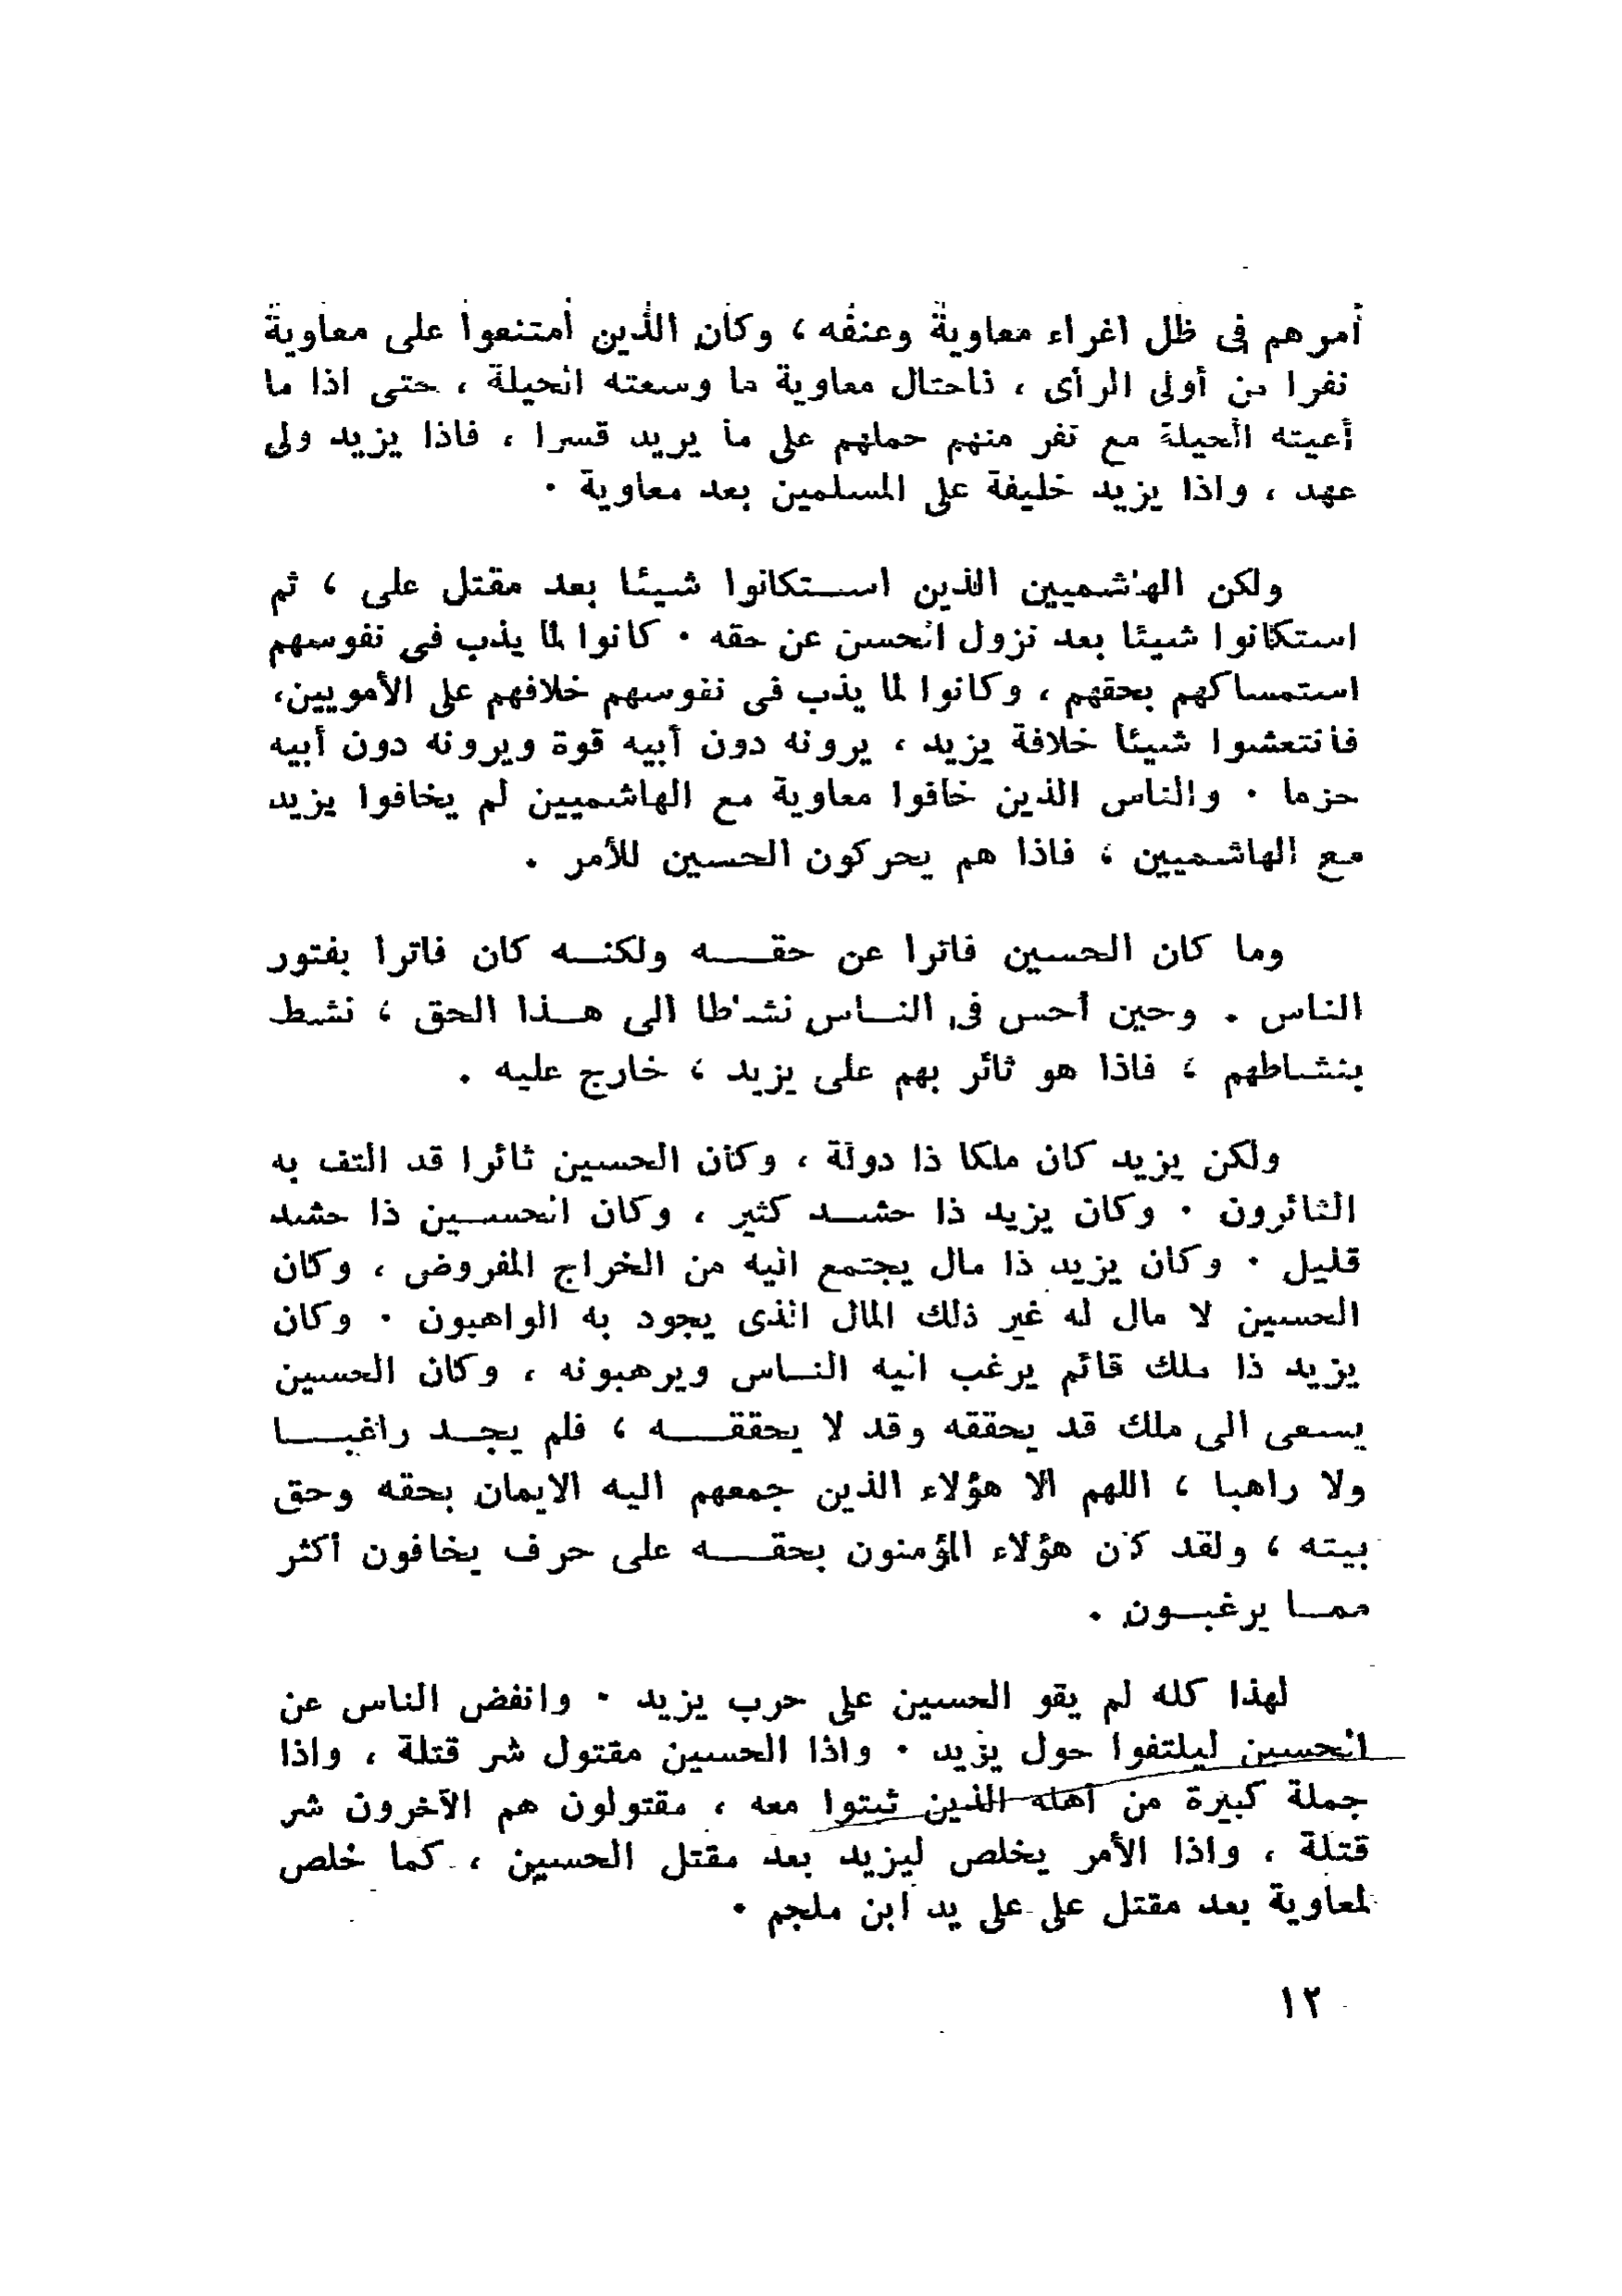 أمرهم فى ظل اغراء معاوية وعنفه ، وكان الذين امتنعوا على معاوية
نفرا من أولى الرأى ، فاحتال معاوية ما وسعته الحيلة ، حتى اذا ما
أعيته الحيلة مع نفر منهم حملهم على ما يريد قسرا ، فاذا يزيد ولى
عهد ، واذا يزيد خليفة على المسلمين بعد معاوية ٠
ولكن الهاشميين الذين استكانوا شيئا بعد مقتل على ، ثم
استكانوا شيئا بعد نزول الحسن عن حقه ٠ كانوا لما يذب فى نفوسهم
استمساكهم بحقهم ، وكانوا لما يذب فى نفوسهم خلافهم على الأمويين،
فانتعشوا شيئا خلافة يزيد ، يرونه دون أبيه قوة ويرونه دون أبيه
حزما ٠ والناس الذين خافوا معاوية مع الهاشميين لم يخافوا يزيد
مع الهاشميين ، فاذا هم يحركون الحسين للأمر .
وما كان الحسين فاترا عن حقه ولكنه كان فاترا بفتور
الناس . وحين أحس فى الناس نشاطا الى هذا الحق ، نشط
بنشاطهم ، فاذا هو ثائر بهم على يزيد ، خارج عليه .
ولكن يزيد كان ملكا ذا دولة ، وكان الحسين ثائرا قد التف به
الثائرون ٠ وكان يزيد ذا حشد كثير ، وكان الحسين ذا حشد
قليل ٠ وكان يزيد ذا مال يجتمع اليه من الخراج المفروض ، وكان
الحسين لا مال له غير ذلك المال الذى يجود به الواهبون ٠ وكان
يزيد ذا ملك قائم يرغب اليه الناس ويرهبونه ، وكان الحسين
يسعى الى ملك قد يحققه وقد لا يحققه ، فلم يجد راغبا
ولا راهبا ، اللهم الا هؤلاء الذين جمعهم اليه الايمان بحقه وحق
بيته ، ولقد كان هؤلاء المؤمنون بحقه على حرف يخافون أكثر
مما يرغبون .
لهذا كله لم يقو الحسين على حرب يزيد ٠ وانفض الناس عن
الحسين ليلتفوا حول يزيد ٠ واذا الحسين مقتول شر قتلة ، واذا
جملة كبيرة من أهله الذين ثبتوا معه ، مقتولون هم الآخرون شر
قتلة ، واذا الأمر يخلص ليزيد بعد مقتل الحسين ، كما خلص
لمعاوية بعد مقتل على على يد ابن ملجم ٠
١٢